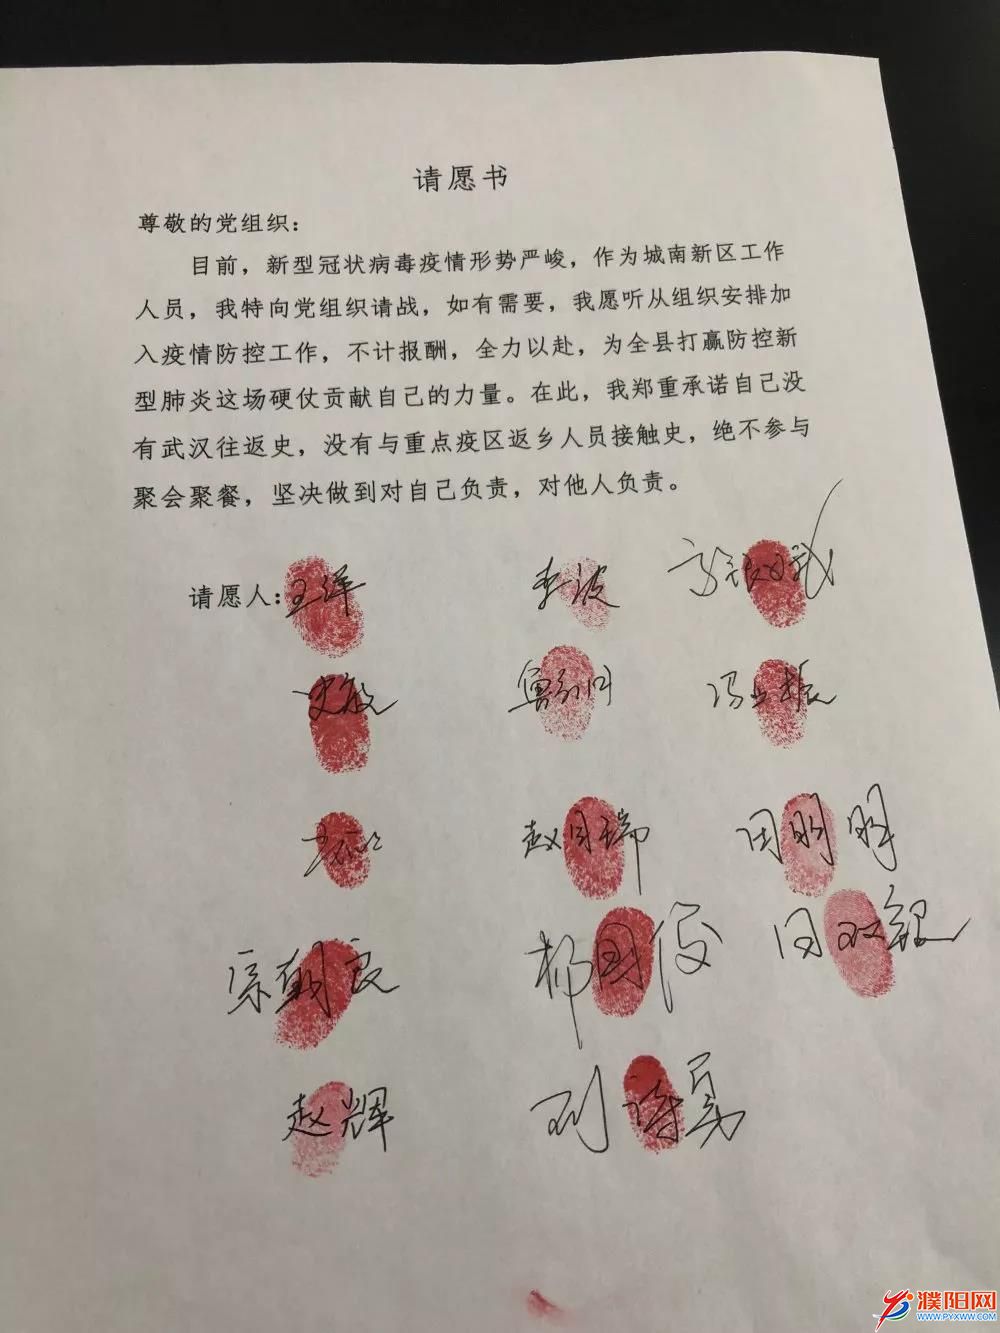 请愿书
尊敬的党组织：
目前，新型冠状病毒疫情形势严峻，作为城南新区工作
人员，我特向党组织请战，如有需要，我愿听从组织安排加
入疫情防控工作，不计报酬，全力以赴，为全县打赢防控新
型肺炎这场硬仗贡献自己的力量。在此，我郑重承诺自己没
有武汉往返史，没有与重点疫区返乡人员接触史，绝不参与
聚会聚餐，坚决做到对自己负责，对他人负责。
请愿人：王洋 李波
史敏
赵月瑞 田明明
宗朝良 杨国俊 田双银
赵辉 刘诗勇
濮阳网
WWW.PYXWW.COM